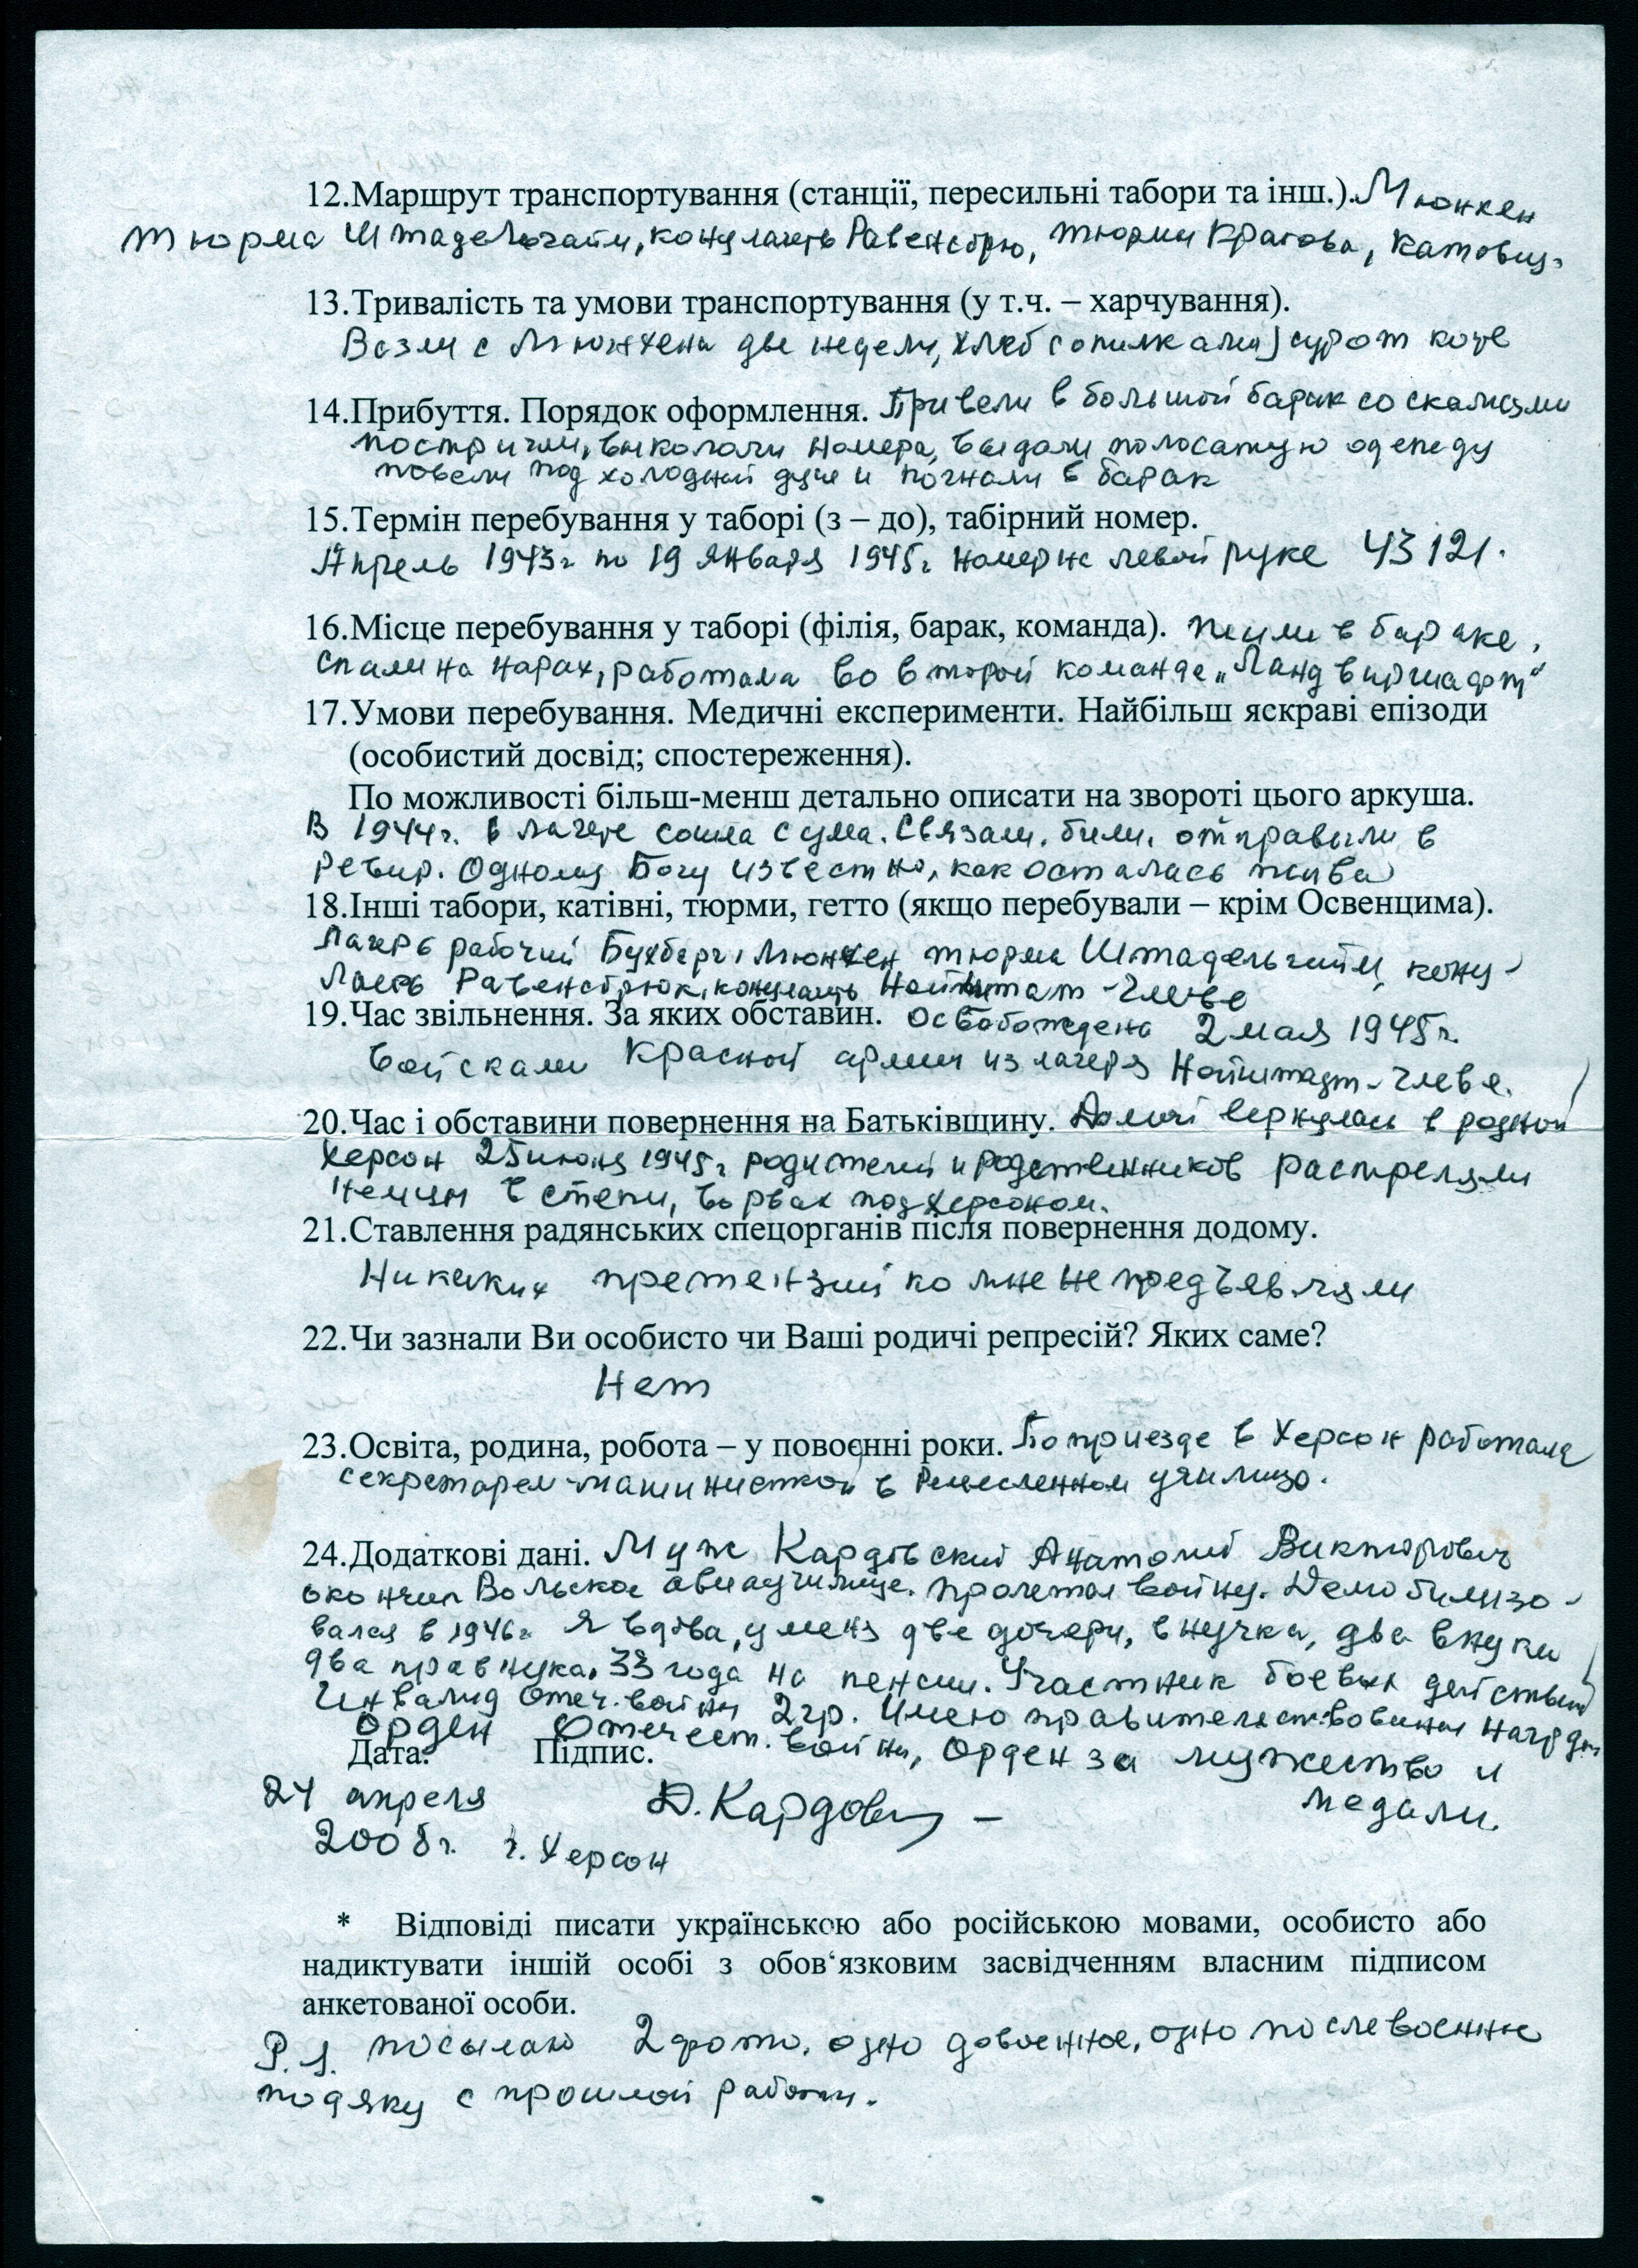 12.Маршрут транспортування (станції, пересильні табори та інш.). Мюнхен
тюрма Штадельгайм, концлагерь Равенсбрю, тюрми Кракова, Катовиц.
13.Тривалість та умови транспортування (у т.ч. – харчування).
Везли с Мюнхена две недели, хлеб с опилками, сурогат кофе
14.Прибуття. Порядок оформлення. Привели в большой барак со скамьями
постригли, выкололи номера, выдали полосатую одежду
повели под холодный душ и погнали в барак
15.Термін перебування у таборі (з – до), табірний номер.
Апрель 1943г по 19 января 1945г номер на левой руке 43121.
16.Місце перебування у таборі (філія, барак, команда). жили в бараке,
спали на нарах, работала во второй команде „Ландвиршафт“
17.Умови перебування. Медичні експерименти. Найбільш яскраві епізоди
(особистий досвід; спостереження).
По можливості більш-менш детально описати на звороті цього аркуша.
В 1944г. в лагере сошла с ума. Связали, били, отправили в
ревир. Одному Богу известно, как осталась жива
18.Інші табори, катівні, тюрми, гетто (якщо перебували – крім Освенцима).
Лагерь рабочий Бухберг, Мюнхен тюрма Штадельгайм, конц-
Лагерь Равенсбрюк, концлагерь Найштат-Глеве
19.Час звільнення. За яких обставин. Освобождена 2 мая 1945г.
войсками Красной армии из лагеря Найштадт-Глеве.
20.Час і обставини повернення на Батьківщину. Домой вернулась в родной
Херсон 25 июня 1945г родителей и родственников расстреляли
немцы в степи, во рвах под Херсоном.
21.Ставлення радянських спецорганів після повернення додому.
Никаких претензий ко мне не предъявляли
22.Чи зазнали Ви особисто чи Ваші родичі репресій? Яких саме?
Нет
23.Освіта, родина, робота – у повоєнні роки. По приезде в Херсон работала
секретарем-машинисткой в Ремесленном училище.
24.Додаткові дані. Муж Кардовский Анатолий Викторович
окончил Вольское авиаучилище. пролетал войну. Демобилизо-
вался в 1946г Я вдова, у меня две дочери, внучка, два внука
два правнука. 33 года на пенсии. Участник боевых действий
Инвалид Отеч. войны 2гр. Имею правительствовенные награды
Орден Отечест. войны, Орден за мужество и
Дата. Підпис.
24 апреля Д. Кардовс медали.
2008г. г. Херсон
* Відповіді писати українською або російською мовами, особисто або
надиктувати іншій особі з обов‘язковим засвідченням власним підписом
анкетованої особи.
P.S. посылаю 2 фото, одно довоенное, одно послевоенное
подяку с прошлой работы.